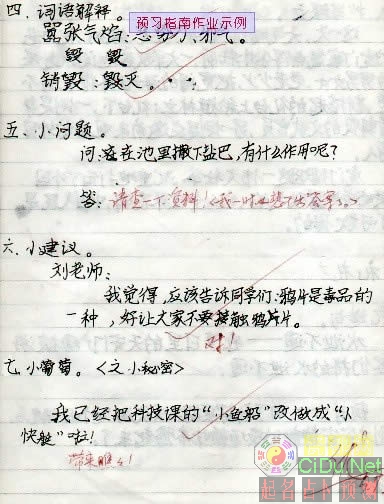 预习指南作业示例
四、词语解释。
嚣张气焰:恶势力,邪气。
毁 毁
销毁:毁灭。
五、小问题。
问:在池里撒下盐巴,有什么作用呢?
答:请查一下资料!(我一时也答不出答案了。)
六、小建议。
刘老师:
我觉得,应该告诉同学们:鸦片是毒品的
一种,好让大家不要接触鸦片。
对!
七、小葡萄。<之小秘密>
我已经把科技课的“小鱼船”改做成“小
快艇”啦!
带来瞧瞧!
CiDu.Net
起名占卜预测